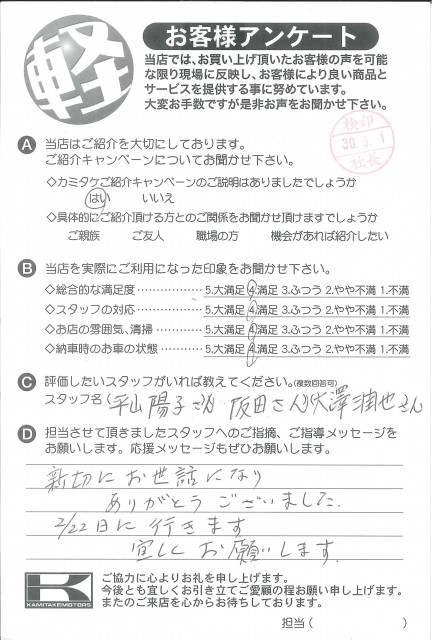 軽
お客様アンケート
当店では、お買い上げ頂いたお客様の声を可能
な限り現場に反映し、お客様により良い商品と
サービスを提供する事に努めています。
大変お手数ですが是非お声をお聞かせ下さい。
検印
30.3.1
社長
A 当店はご紹介を大切にしております。
ご紹介キャンペーンについてお聞かせ下さい。
◇カミタケご紹介キャンペーンのご説明はありましたでしょうか
はい いいえ
◇具体的にご紹介頂ける方とのご関係をお聞かせ頂けますでしょうか
ご親族 ご友人 職場の方 機会があれば紹介したい
B 当店を実際にご利用になった印象をお聞かせ下さい。
◇総合的な満足度 5.大満足 4.満足 3.ふつう 2.やや不満 1.不満
◇スタッフの対応 5.大満足 4.満足 3.ふつう 2.やや不満 1.不満
◇お店の雰囲気、清掃 5.大満足 4.満足 3.ふつう 2.やや不満 1.不満
◇納車時のお車の状態 5.大満足 4.満足 3.ふつう 2.やや不満 1.不満
C 評価したいスタッフがいれば教えてください。(複数回答可)
スタッフ名(平山陽子さん 阪田さん 大澤 也さん
D 担当させて頂きましたスタッフへのご指摘、ご指導メッセージを
お願いします。応援メッセージもぜひお願いします。
新切にお世話になり
ありがとうございました.
2/22日に行きます
宜しくお願いします.
K
KAMITAKEMOTORS
ご協力に心よりお礼を申し上げます。
今後とも宜しくお引き立てご愛顧の程お願い申し上げます。
またのご来店を心からお待ちしております。
担当( )